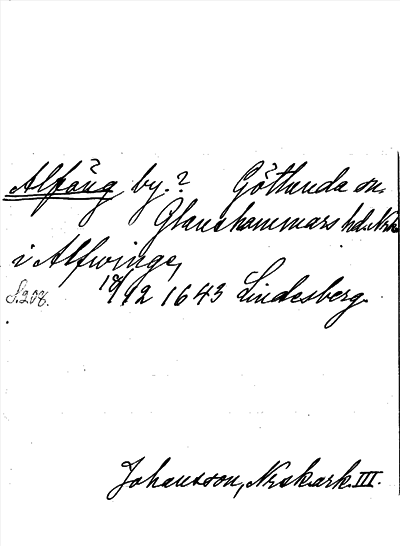 Alfång by.? Götlunda sn.
Glanshammars hd. Nrk
i Alfwinge,
S.208. 19/12 1643 Lindesberg.
Johansson, Nrsk.ark. III.